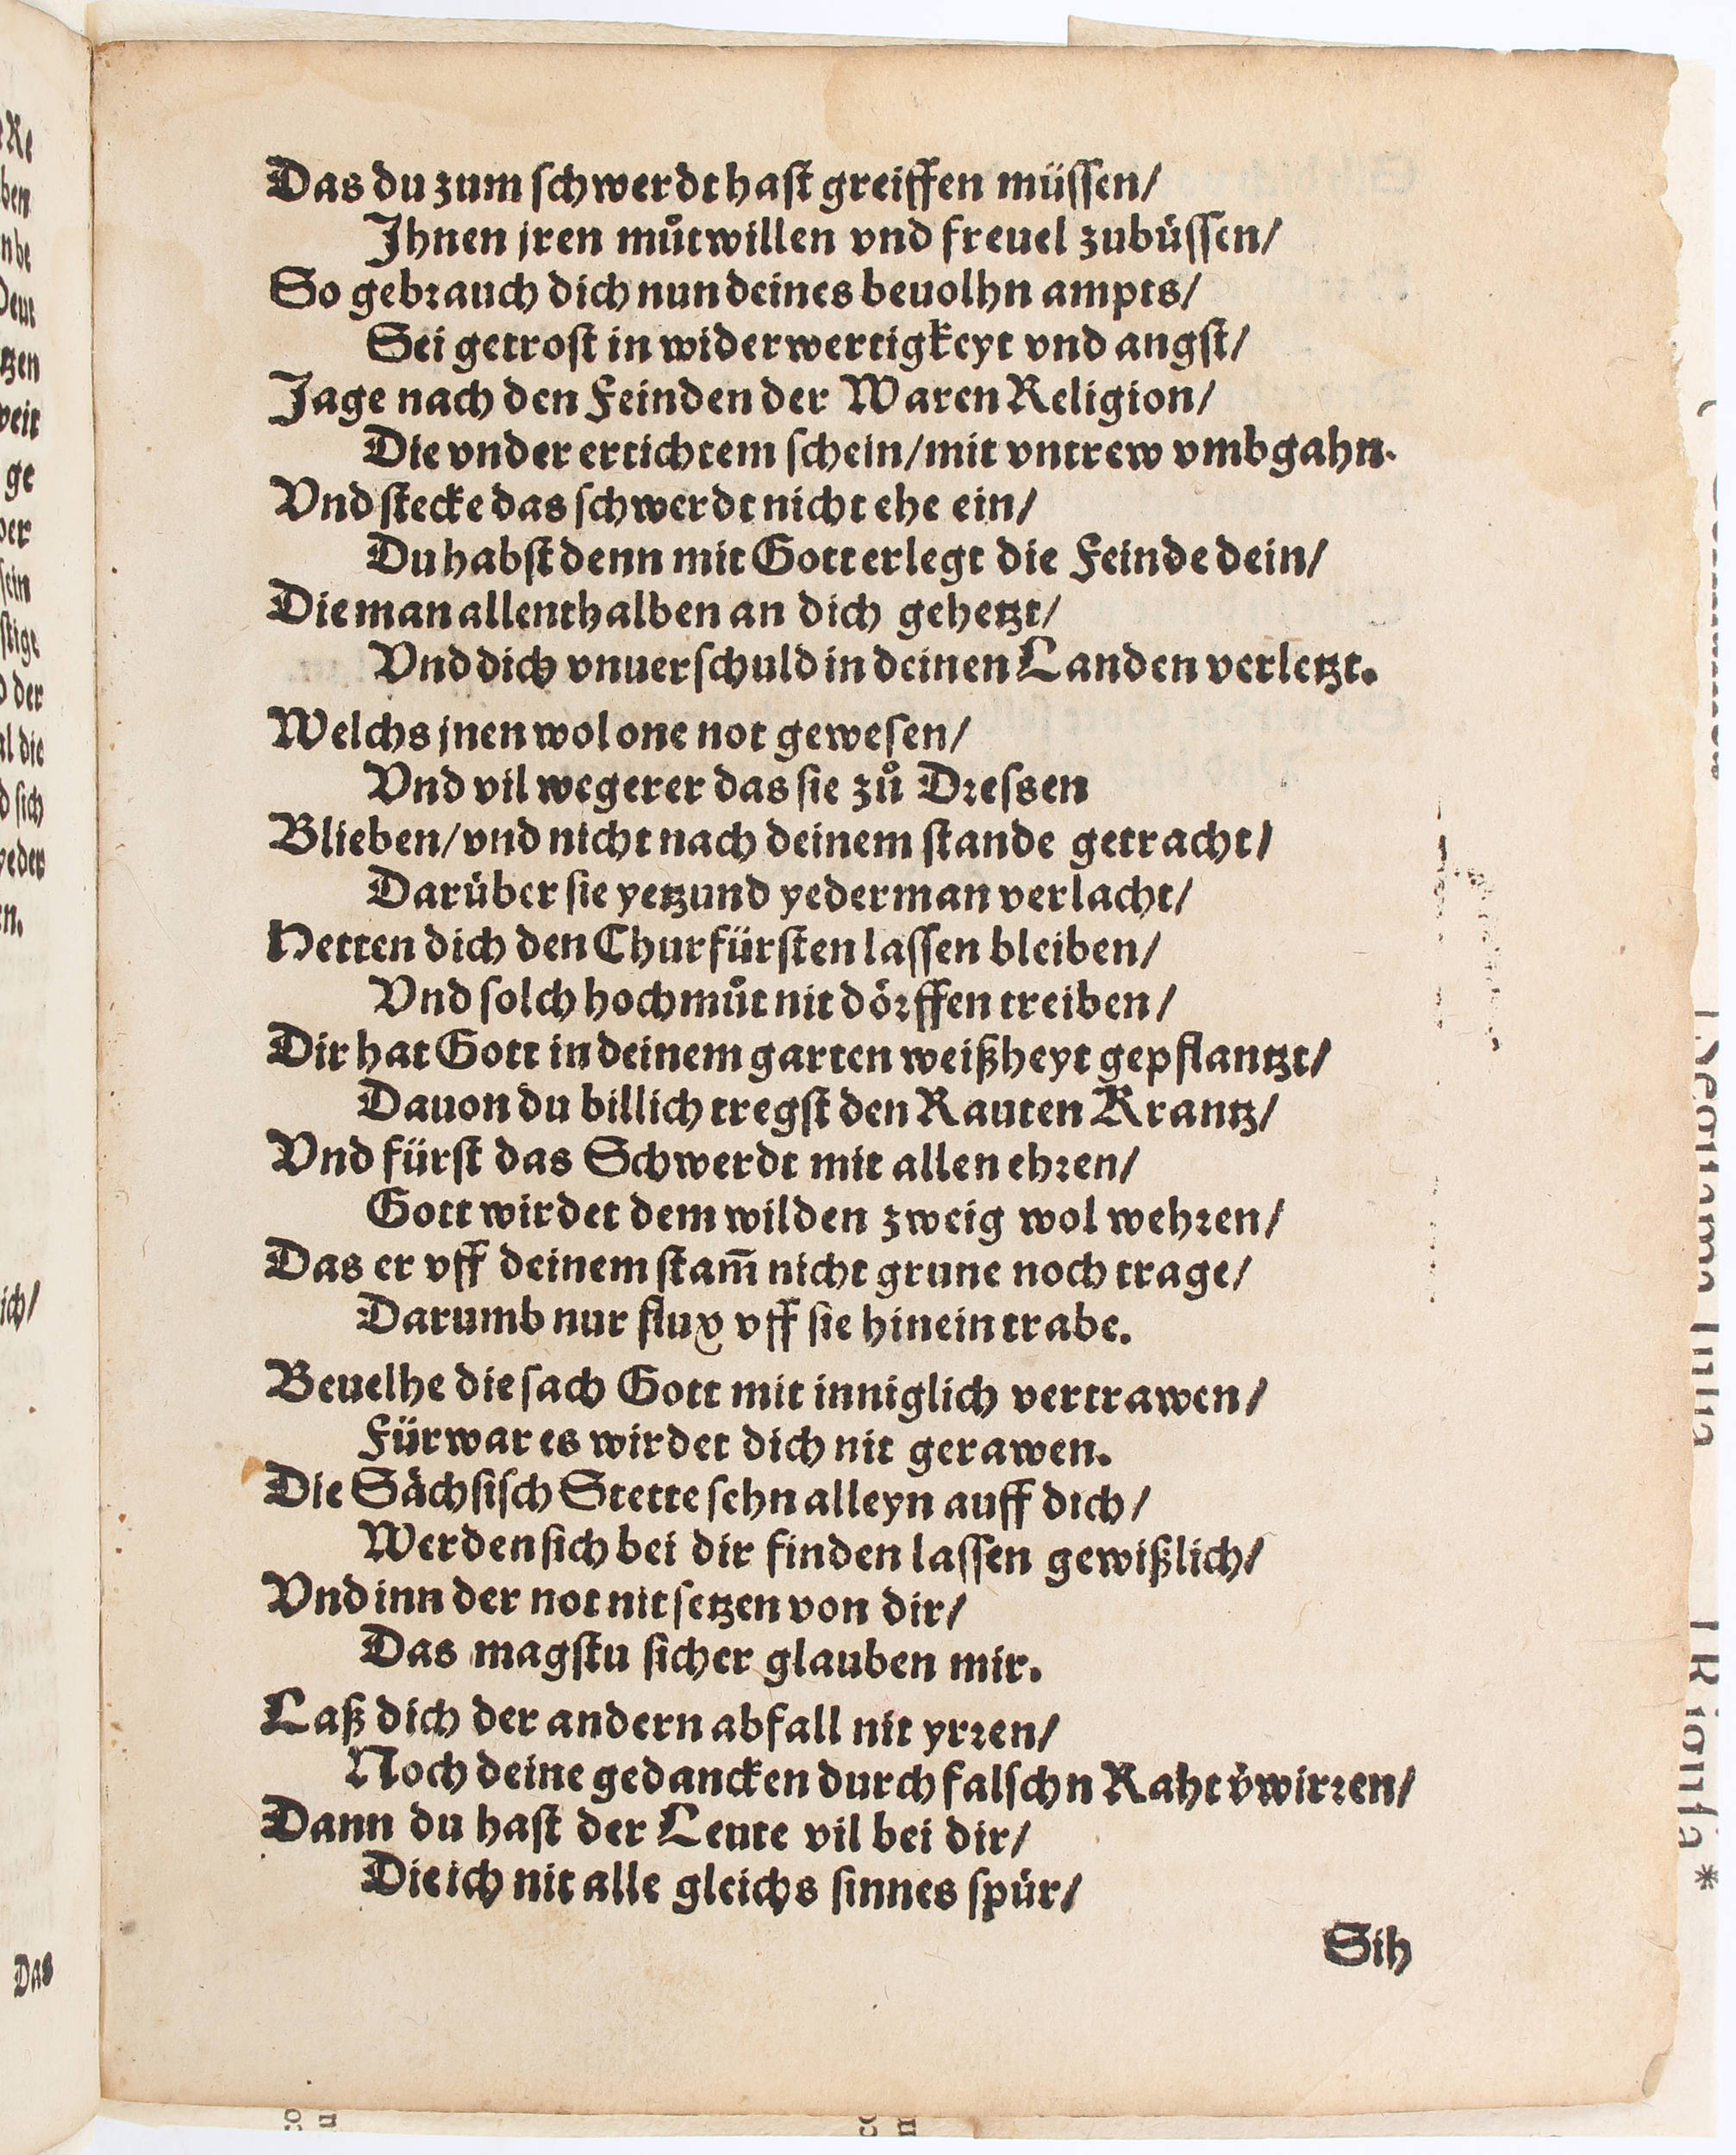 Das du zum schwerdt hast greiffen müssen/
Ihnen jren muͤtwillen vnd freuel zubüssen/
So gebrauch dich nun deines beuolhn ampts/
Sei getrost in widerwertigkeyt vnd angst/
Jage nach den Feinden der Waren Religion/
Die vnder ertichtem schein/mit vntrew vmbgahn.
Vnd stecke das schwerdt nicht ehe ein/
Du habst denn mit Gott erlegt die Feinde dein/
Die man allenthalben an dich gehetzt/
Vnd dich vnuerschuld in deinen Landen verletzt.
Welchs jnen wol one not gewesen/
Vnd vil wegerer das sie zů Dressen
Blieben/vnd nicht nach deinem stande getracht/
Darüber sie yetzund yederman verlacht/
Hetten dich den Churfürsten lassen bleiben/
Vnd solch hochmůt nit dörffen treiben/
Dir hat Gott in deinem garten weißheyt gepflantzt/
Dauon du billich tregst den Rauten Krantz/
Vnd fürst das Schwerdt mit allen ehren/
Gott wirdet dem wilden zweig wol wehren/
Das er vff deinem stam̅ nicht grune noch trage/
Darumb nur flux vff sie hinein trabe.
Beuelhe die sach Gott mit inniglich vertrawen/
Fürwar es wirdet dich nit gerawen.
Die Sächsisch Stette sehn alleyn auff dich/
Werden sich bei dir finden lassen gewißlich/
Vnd inn der not nit setzen von dir/
Das magstu sicher glauben mir.
Laß dich der andern abfall nit yrren/
Noch deine gedancken durch falschn Raht v̈wirren/
Dann du hast der Leute vil bei dir/
Die ich nit alle gleichs sinnes spür/
Sih